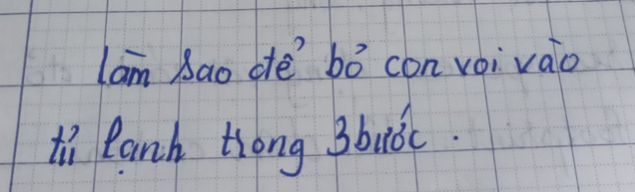 làm sao để bỏ con voi vào
tủ lạnh trong 3 bước.